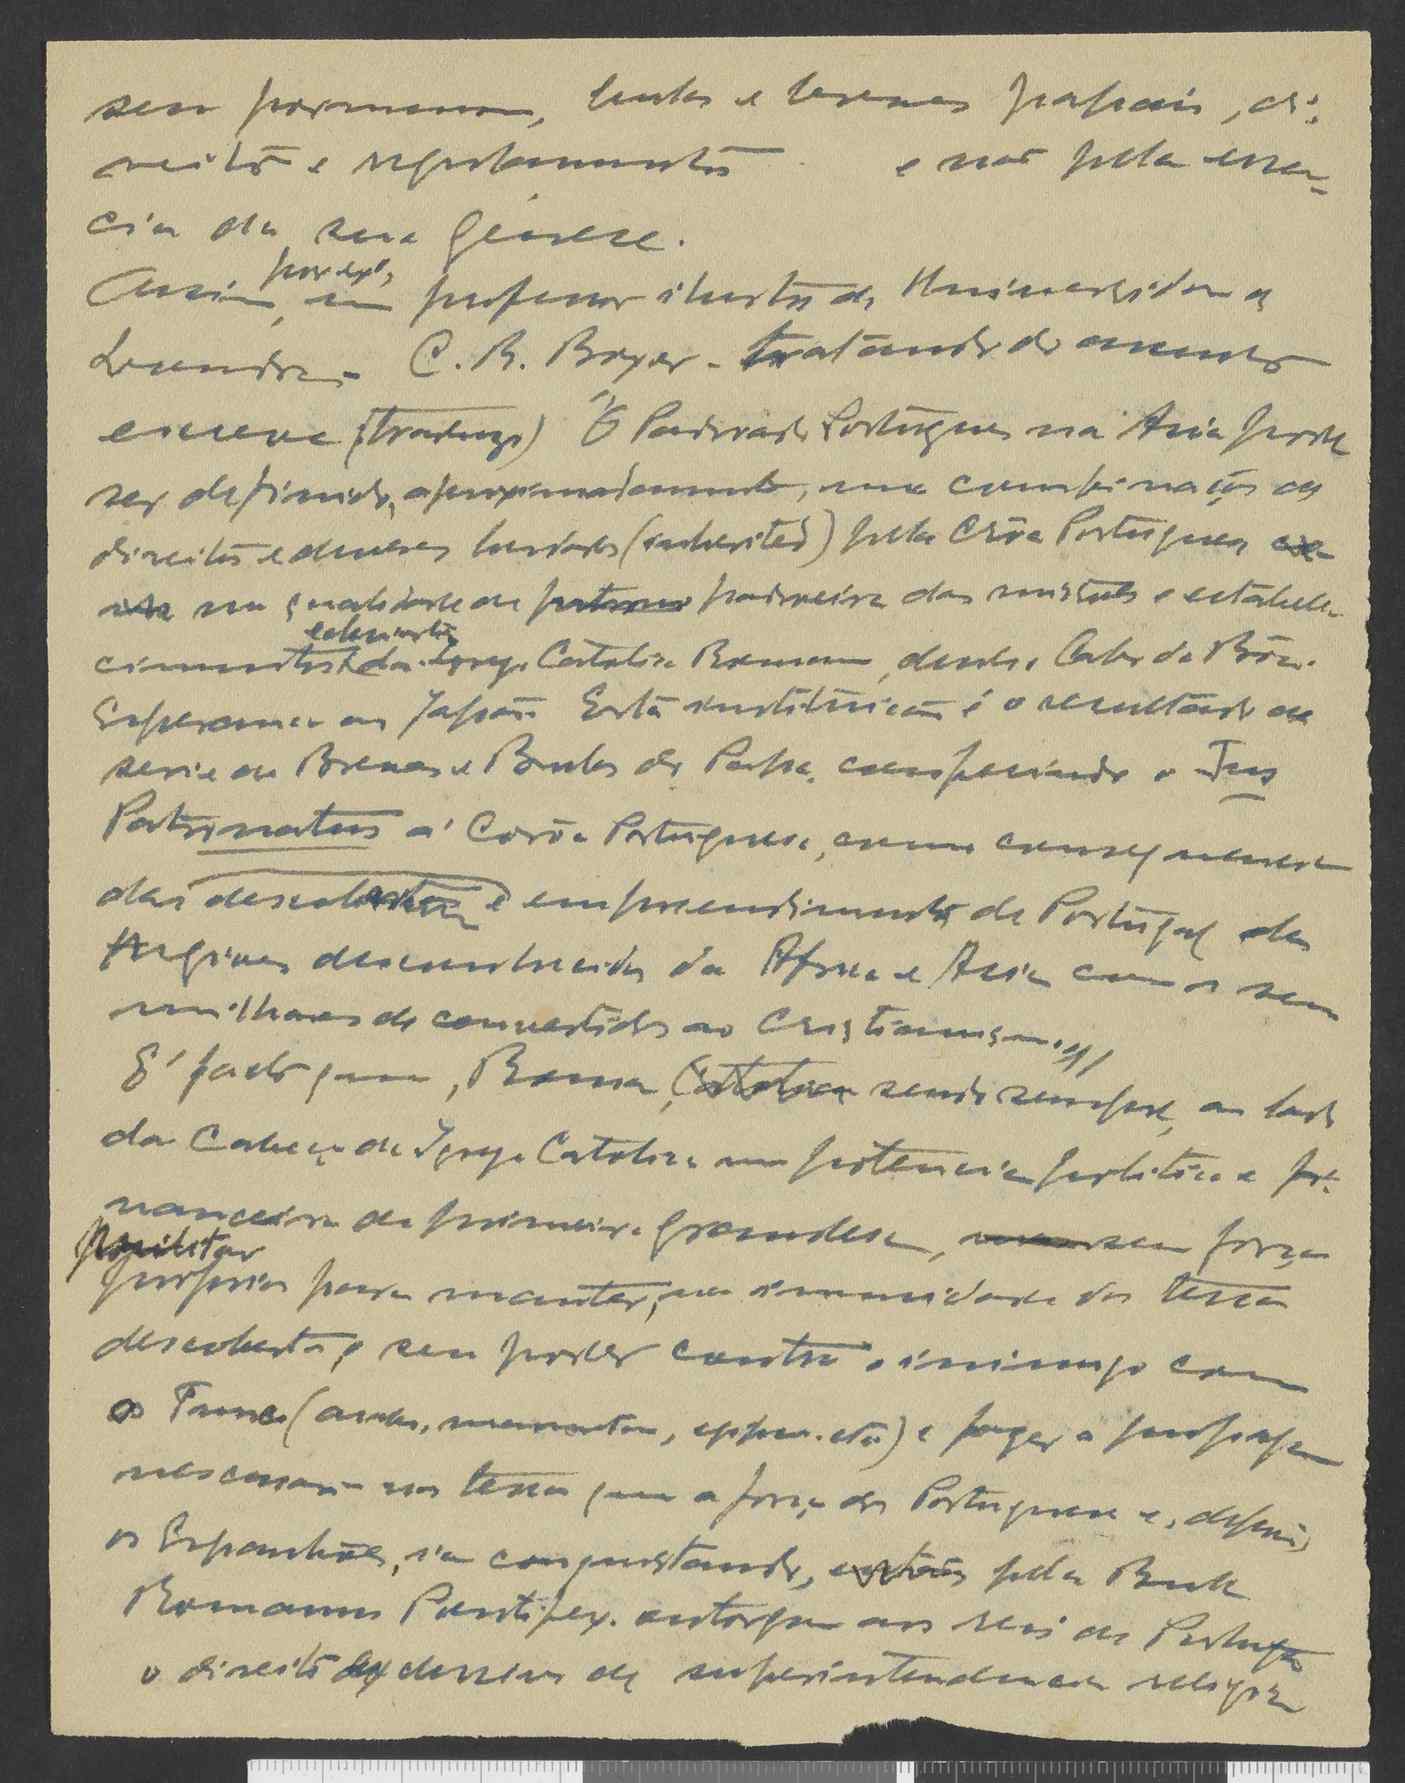 seu pormenor, bulas e breves papais, di-
reitos e regulamentos e não pela essen-
cia da sua génese.
Assim, por exº, um professor ilustre da Universidade de
Londres - C. R. Boxer - tratando do assunto
escreve (traduzo) "O Padroado Português na Asia pode
ser definido, aproximadamente, uma combinação de
direitos e deveres herdados (inherited) pela Crôa Portuguesa
na qualidade de padroeira das missões e estabele-
cimentos eclesiasticos da Igreja Catolica Romana, desde o Cabo da Bôa
Esperança ao Japão. Esta instituição é o resultado de
serie de Breves e Bulas do Papa, conferindo o Jus
Patronatus á Corôa Portuguesa, como consequencia
das descobertas e empreendimentos de Portugal das
regiões desconhecidas da Africa e Asia com os seus
milhares de convertidos ao Cristianismo."
É facto que, Roma, sendo sempre, ao lado
da Cabeça da Igreja Catolica uma potencia politica e fi-
nanceira de primeira grandesa, sem força
militar propria para manter, na imensidade das terras
descobertas, o seu poder contra o inimigo comum
(arabes, , egipcios, etc) e fazer a propaganda
necessaria nas terras que a força dos Portugueses e, depois,
os Espanhóes, ia conquistando, pela Bula
Romanus Pontifex. outorgou aos reis de Portugal
o direito exclusivo de superintendencia religiosa